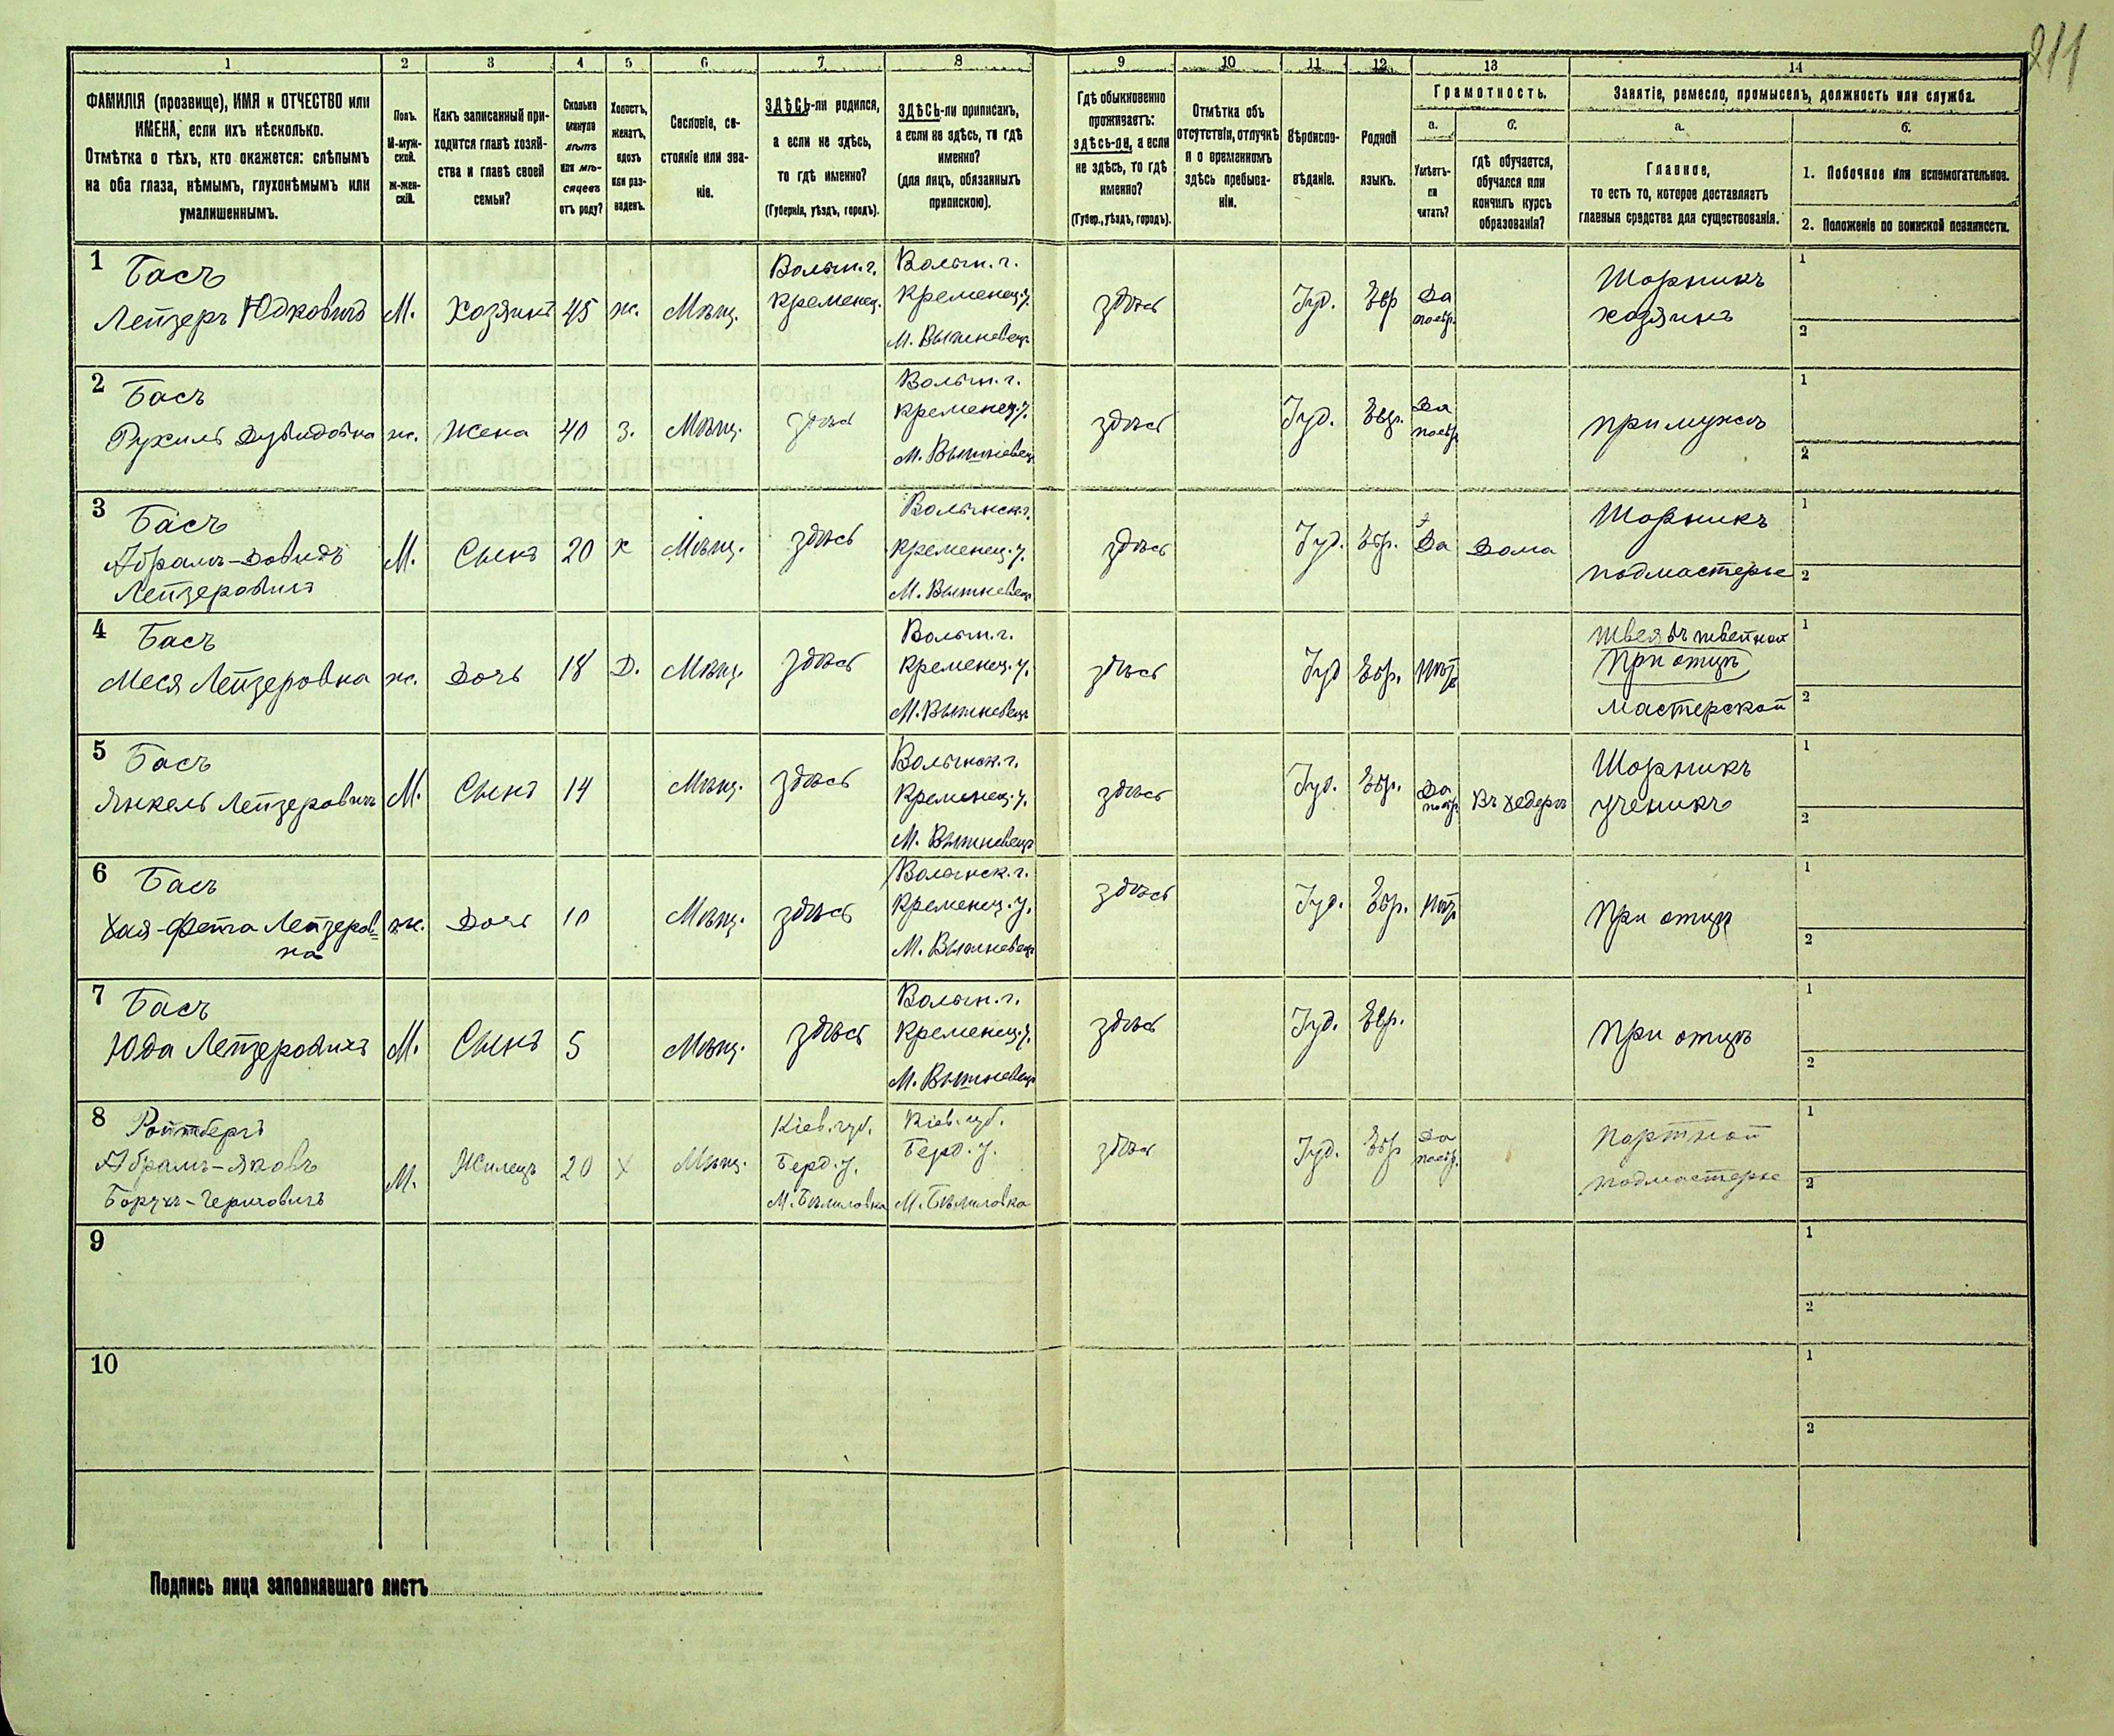 211
1 2 3 4 5 6 7 8 9 10 11 12 13 14
ФАМИЛІЯ (прозвище), ИМЯ и ОТЧЕСТВО или
ИМЕНА, если ихъ нѣсколько.
Отмѣтка о тѣхъ, кто окажется: слѣпымъ
на оба глаза, нѣмымъ, глухонѣмымъ или
умалишеннымъ.
Полъ.
М-муж-
ской.
Ж-жен-
скій.
Какъ записанный при-
ходится главѣ хозяй-
ства и главѣ своей
семьи?
Сколько
минуло
лѣтъ
или мѣ-
сяцевъ
отъ роду?
Холостъ,
женатъ,
вдовъ
или раз-
веденъ.
Сословіе, со-
стояніе или зва-
ніе.
ЗДѢСЬ-ли родился,
а если не здѣсь,
то гдѣ именно?
(Губернія, уѣздъ, городъ).
ЗДѢСЬ-ли приписанъ,
а если не здѣсь, то гдѣ
именно?
(для лицъ, обязанныхъ
припискою).
Гдѣ обыкновенно
проживаетъ:
здѣсь-ли, а если
не здѣсь, то гдѣ
именно?
(Губер., уѣздъ, городъ).
Отмѣтка объ
отсутствіи, отлучкѣ
и о временномъ
здѣсь пребыва-
ніи.
Вѣроиспо-
вѣданіе.
Родной
языкъ.
Грамотность.
а.
Умѣетъ-
ли
читать?
б.
гдѣ обучается,
обучался или
кончилъ курсъ
образованія?
Занятіе, ремесло, промыселъ, должность или служба.
а.
Главное,
то есть то, которое доставляетъ
главныя средства для существованія.
б.
1. Побочное или вспомогательное.
2. Положеніе по воинской повинности.
1
Басъ
Лейзеръ Юдковичъ
М.
Хозяинъ
45
ж.
Мѣщ.
Волын. г.
Кременец.
Волын. г.
Кременец. у.
М. Вышневец
здѣсь
Іуд.
Евр
Да
по евр.
Шорникъ
хозяинъ
1
2
2
Басъ
Рухиль Дувидовна
ж.
Жена
40
З.
Мѣщ.
здѣсь
Волын. г.
Кременец. у.
М. Вышневец
здѣсь
Іуд.
Евр.
Да
по евр
при мужѣ
1
2
3
Басъ
Абрамъ-Довидъ
Лейзеровичъ
М.
Сынъ
20
х
Мѣщ.
здѣсь
Волынск. г.
Кременец. у.
М. Вышневец
здѣсь
Іуд.
Евр.
Да
Дома
Шорникъ
подмастерье
1
2
4
Басъ
Меся Лейзеровна
ж.
Дочь
18
Д.
Мѣщ.
здѣсь
Волын. г.
Кременец. у.
М. Вышневецъ
здѣсь
Іуд
Евр.
Нѣтъ
Швея въ швейной
При отцѣ
мастерской
1
2
5
Басъ
Янкель Лейзеровичъ
М.
Сынъ
14
Мѣщ.
здѣсь
Волынск. г.
Кременец. у.
М. Вышневецъ
здѣсь
Іуд.
Евр.
Да
по евр.
Въ хедерѣ
Шорникъ
ученикъ
1
2
6
Басъ
Хая-Фейга Лейзеров=
на
ж.
Дочь
10
Мѣщ.
здѣсь
Волынск. г.
Кременец. у.
М. Вышневец
здѣсь
Іуд.
Евр.
Нѣтъ
При отцѣ
1
2
7
Басъ
Юда Лейзеровичъ
М.
Сынъ
5
Мѣщ.
здѣсь
Волын. г.
Кременец. у.
М. Вышневец
здѣсь
Іуд.
Евр.
При отцѣ
1
2
8
Ройтбергъ
Абрамъ-Яковъ
М.
Жилецъ
20
х
Мѣщ.
Кіев. губ.
Берд. у.
М. Бѣлиловка
Кіев. губ.
Берд. у.
М. Бѣлиловка
здѣсь
Іуд.
Евр
Да
по евр.
Портной
подмастерье
1
2
9
1
2
10
1
2
Подпись лица заполнявшаго листъ